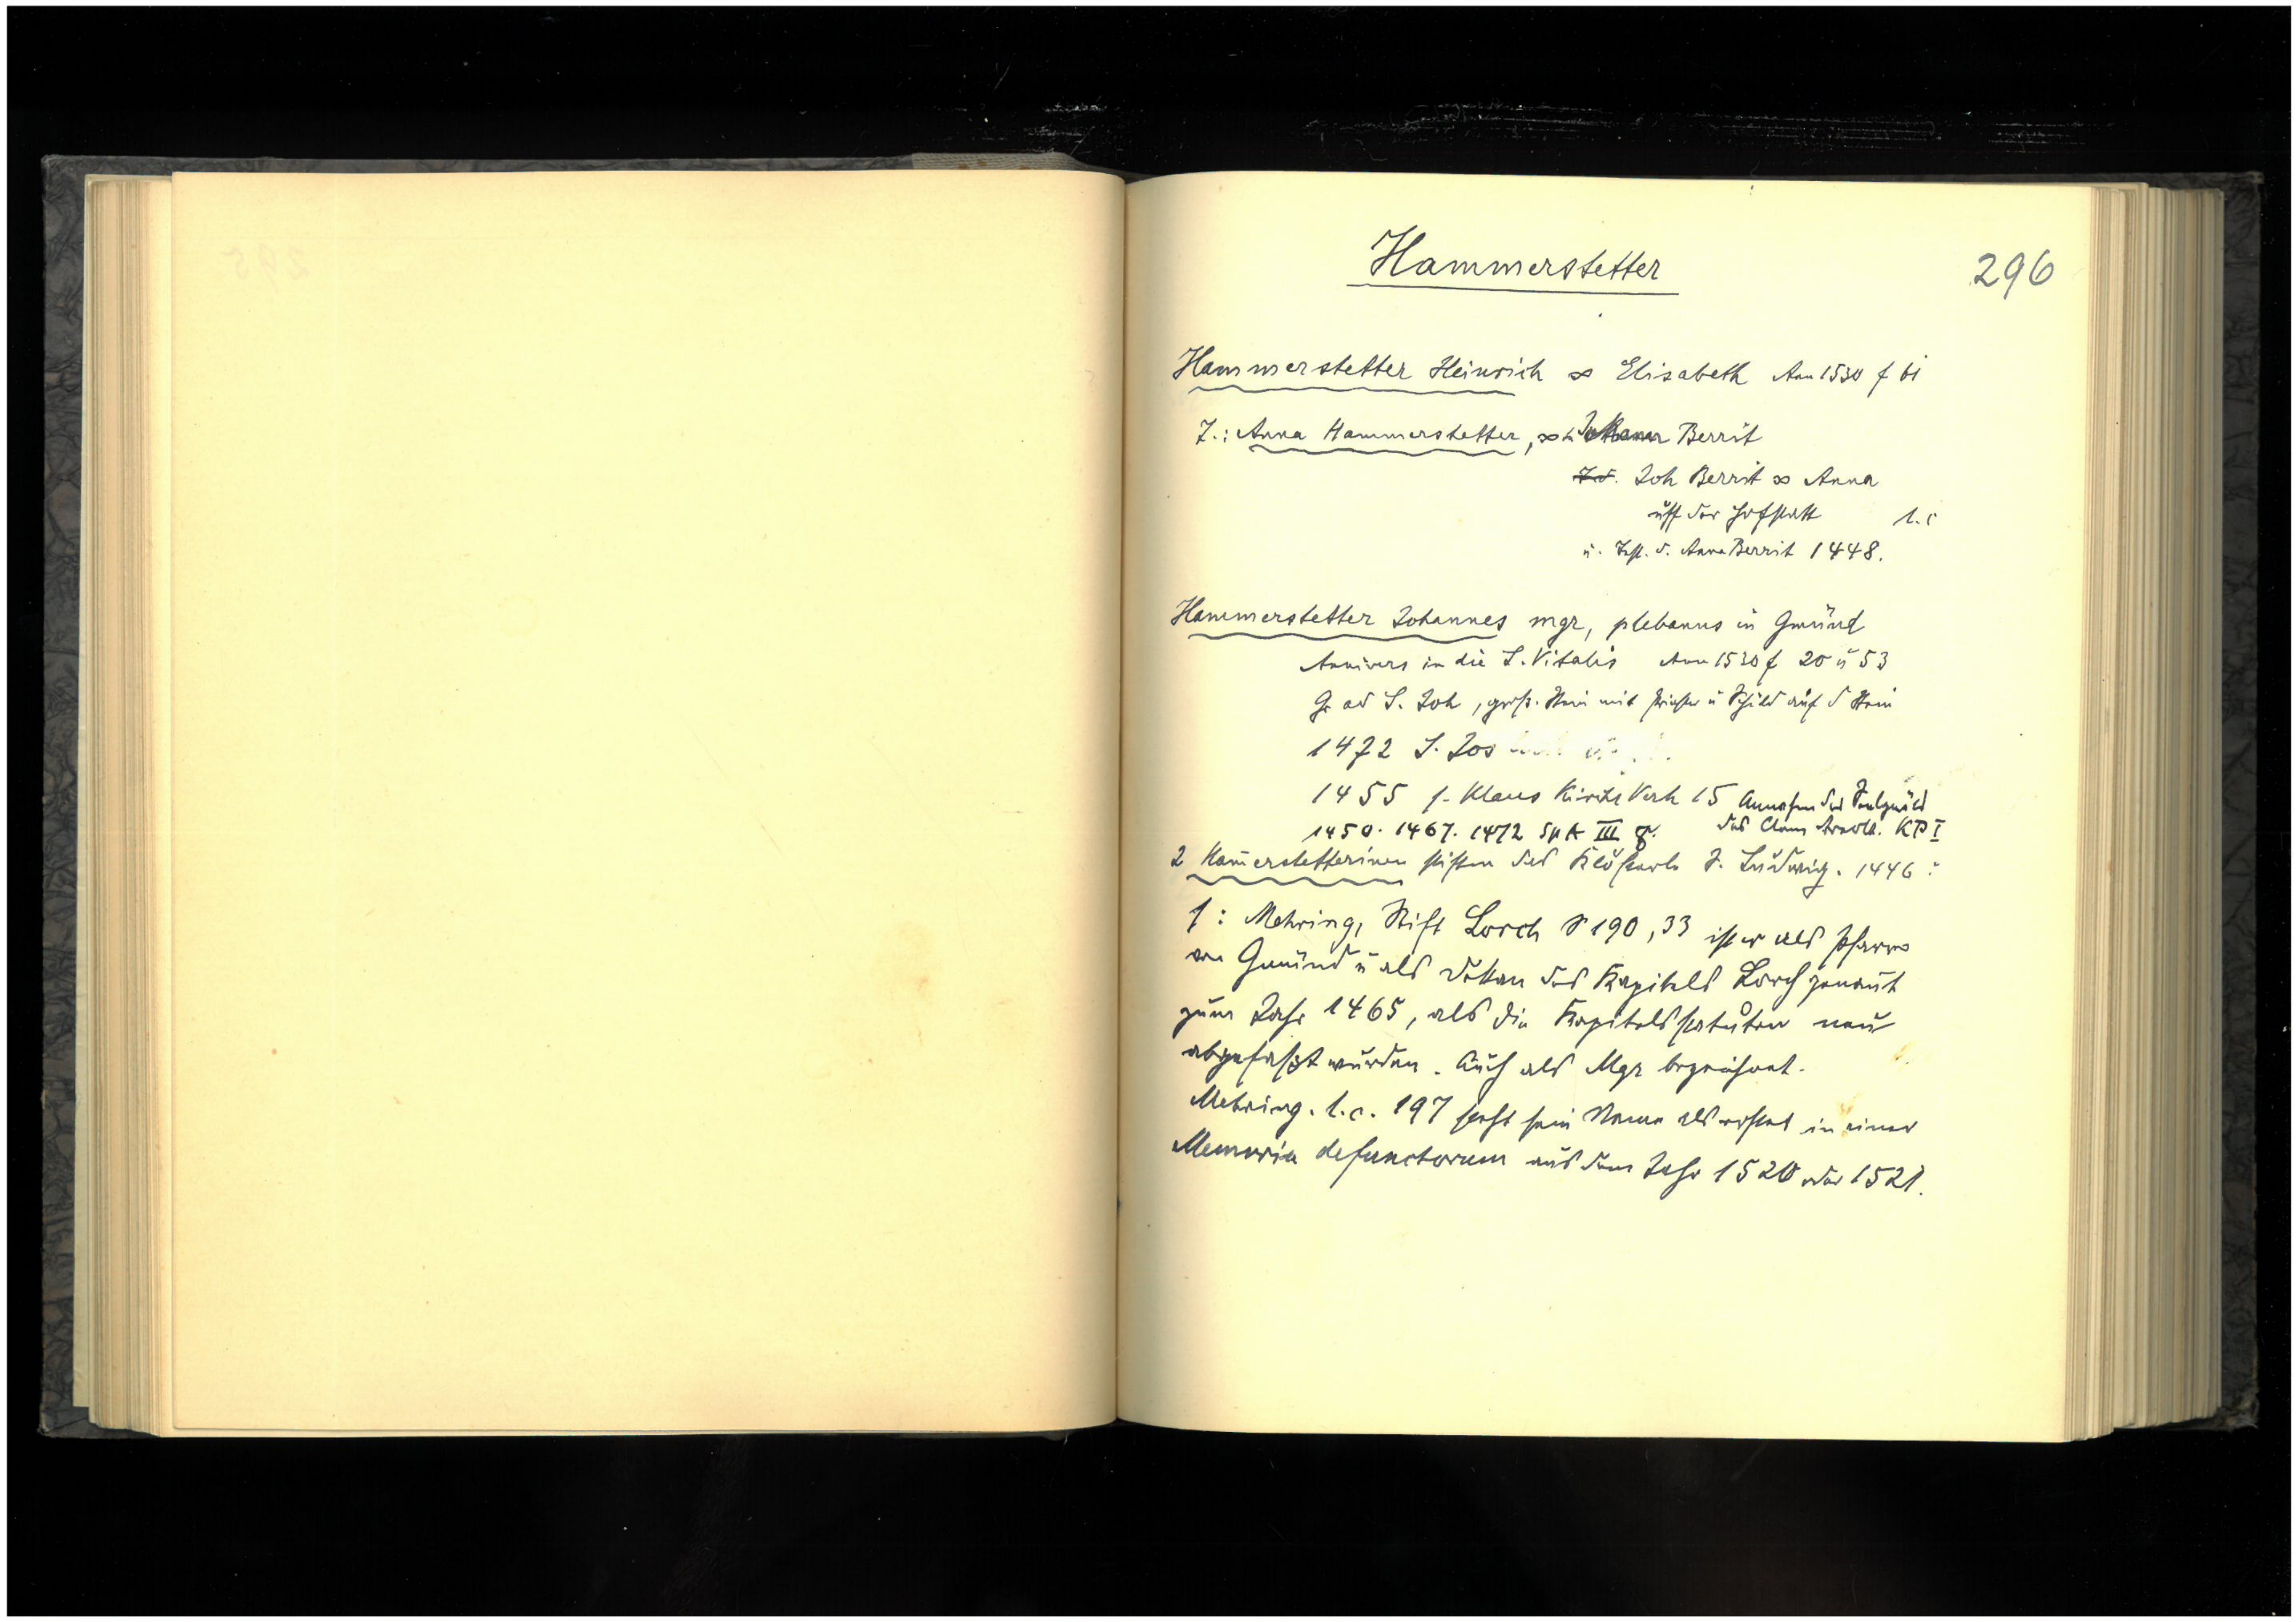 Hammerstetter
296
Hammerstetter Heinrich ∞ Elisabeth Ann 1530 f 61
T.: Anna Hammerstetter, ∞ Berrit
Joh Berrit ∞ Anna
uff der Hofstatt l.c
u. Test. d. Anna Berrit 1448.
Hammerstetter Johannes mgr, plebanus in Gmünd
Annivers in die S. Vitalis Ann 1530 f 20 u 53
Gr ad S. Joh, groß. Stein mit Priester u Schild auf d Stein
1472 S. Jos
1455 f. Klaus Kirche Verh 15 der Seelgerät
1450. 1467. 1472 Sp A III 8. des Claus KP I
2 Ham̄erstetterinen stiften das Klösterle S. Ludwig. 1446
f: Mehring, Stift Lorch S 190, 33 ist er als Pfarrer
von Gmünd u als Dekan des Kapitels Lorch genannt
zum Jahr 1465, als die Kapitelsstatuten neu
abgefaßt wurden. Auch als Mgr bezeichnet.
Mehring. l.c. 197 steht sein Name als erster in einer
Memoria defunctorum aus dem Jahr 1520 oder 1521.